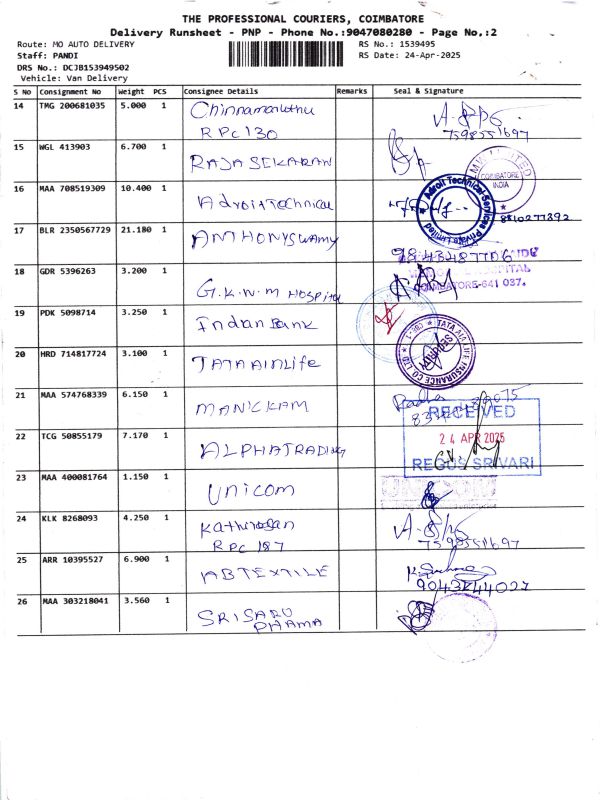 THE PROFESSIONAL COURIERS, COIMBATORE
Delivery Runsheet - PNP - Phone No.:9047080280 - Page No,:2
Route: MO AUTO DELIVERY RS No.: 1539495
Staff: PANDI RS Date: 24-Apr-2025
DRS No.: DCJB153949502
Vehicle: Van Delivery
S No Consignment No Weight PCS Consignee Details Remarks Seal & Signature
14 TMG 200681035 5.000 1 Chinnamaruthu
RPC 130
7598551697
15 WGL 413903 6.700 1 RAJASEKARAN
COIMBATORE
INDIA
16 MAA 708519309 10.400 1 Adroit Technical
Adroit Technical Services Private Limited
8810277392
17 BLR 2350567729 21.180 1 ANTHONYSWAMY
9843487706
18 GDR 5396263 3.200 1 G.K.N.M HOSPITAL
HOSPITAL
COIMBATORE-641 037.
19 PDK 5098714 3.250 1 Indian Bank
20 HRD 714817724 3.100 1 TATA AIA Life
TATA AIA LIFE INSURANCE CO. LTD.
21 MAA 574768339 6.150 1 MANICKAM
Radha
22 TCG 50855179 7.170 1 ALPHATRADING
RECEIVED
24 APR 2025
REGUS SRIVARI
23 MAA 400081764 1.150 1 Unicom
24 KLK 8268093 4.250 1 Kathiresan
RPC 187
7598551697
25 ARR 10395527 6.900 1 ABTEXTILE
9043244027
26 MAA 303218041 3.560 1 SRISARU
PHAMA